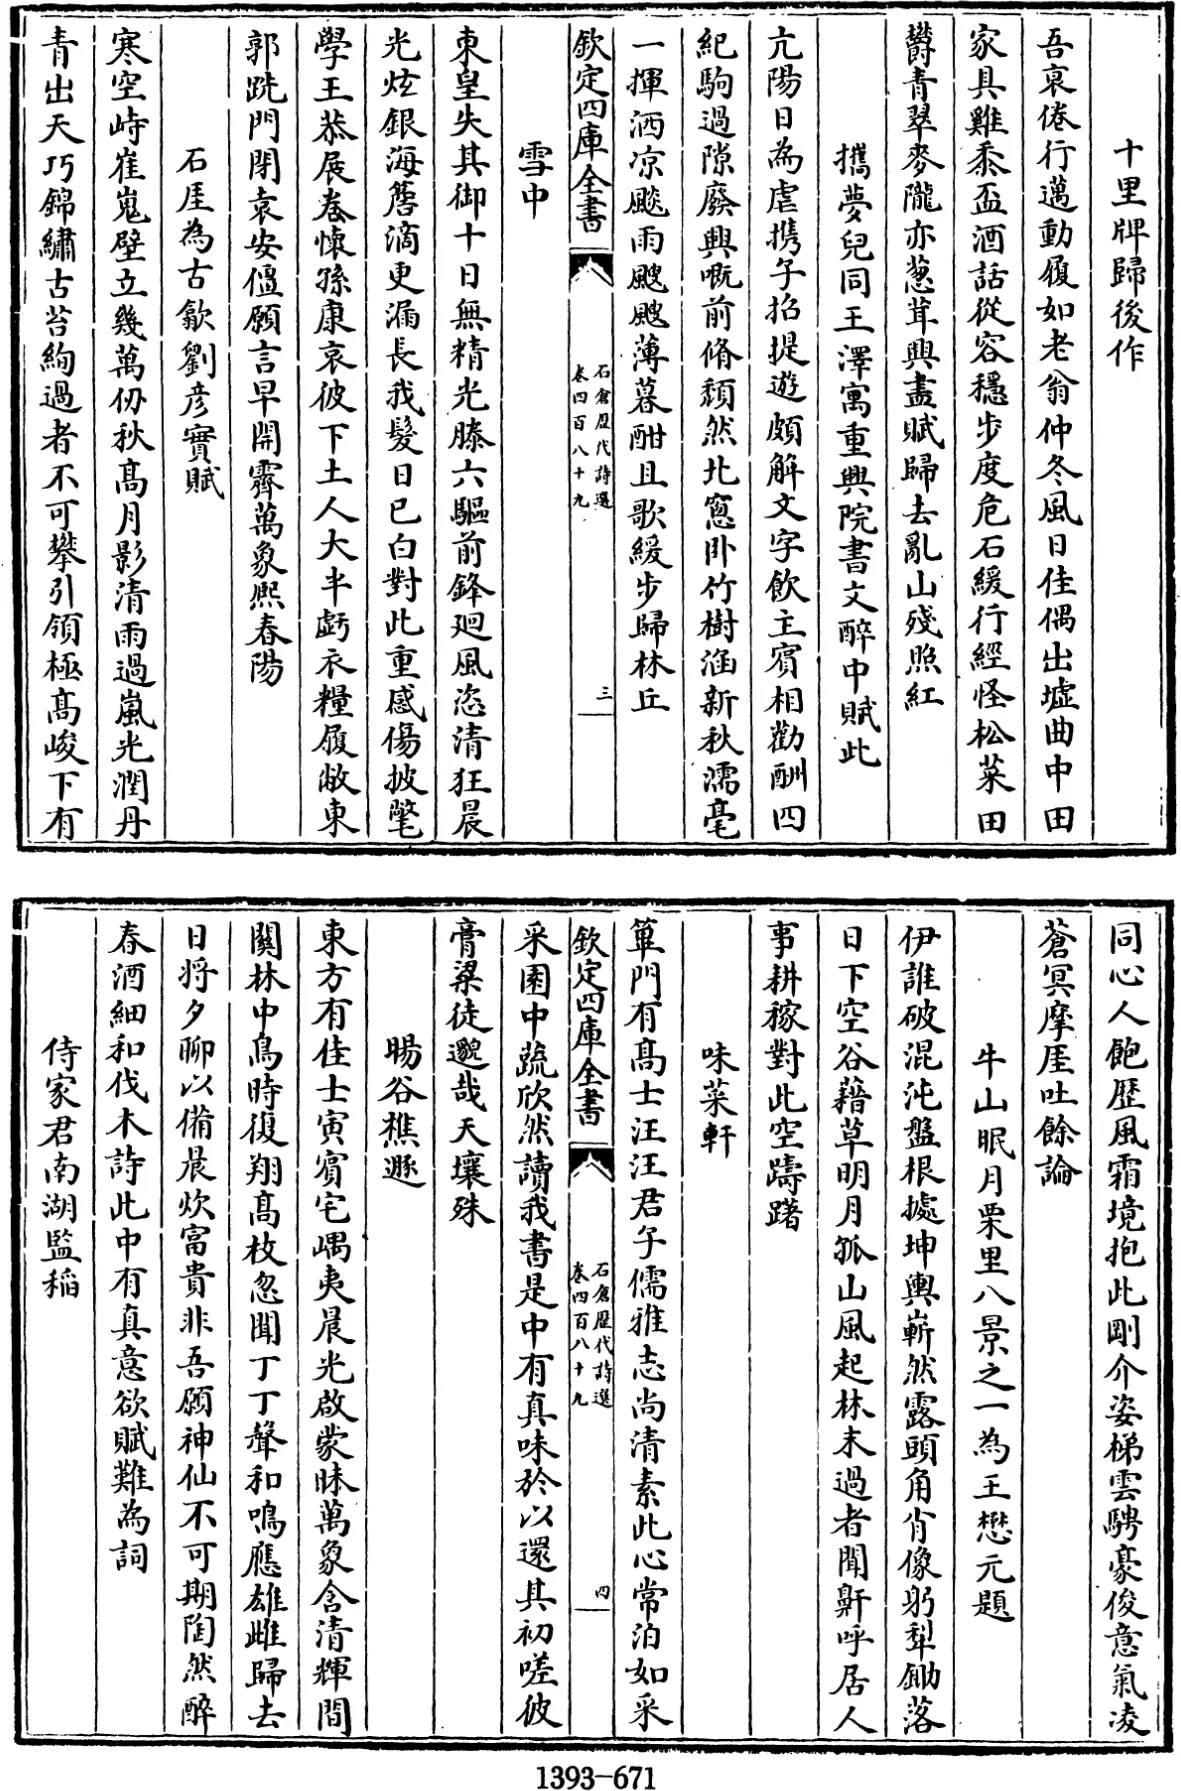 十里牌歸後作
吾衰倦行邁動履如老翁仲冬風日佳偶出墟曲中田
家具雞黍盃酒話從容穩步度危石緩行經怪松菜田
欝青翠麥隴亦葱茸興盡賦歸去亂山殘照紅
攜夢兒同王澤寓重興院書文醉中賦此
亢陽日為虐携子招提遊頗解文字飲主賓相勸酬四
紀駒過隙廢興嘅前脩頹然北窻卧竹樹涵新秋濡毫
一揮洒凉颷雨颼颼薄暮酣且歌緩步歸林丘
欽定四庫全書
石倉歷代詩選
卷四百八十九
三
雪中
東皇失其御十日無精光滕六驅前鋒廻風恣清狂晨
光炫銀海簷滴更漏長我髮日已白對此重感傷披氅
學王恭展卷懷孫康哀彼下土人大半虧衣糧履敝東
郭跣門閉袁安僵願言早開霽萬象熙春陽
石厓為古歙劉彦實賦
寒空峙崔嵬壁立幾萬仞秋高月影清雨過嵐光潤丹
青出天巧錦繡古苔絢過者不可攀引領極高峻下有
同心人飽歷風霜境抱此剛介姿梯雲騁豪俊意氣凌
蒼冥摩厓吐餘論
牛山眠月栗里八景之一為王懋元題
伊誰破混沌盤根據坤輿嶄然露頭角肖像躬犁鋤落
日下空谷藉草明月孤山風起林末過者聞鼾呼居人
事耕稼對此空躊躇
味菜軒
篳門有高士汪汪君子儒雅志尚清素此心常泊如采
欽定四庫全書
石倉歷代詩選
卷四百八十九
四
采園中蔬欣然讀我書是中有真味於以還其初嗟彼
膏粱徒邈哉天壤殊
暘谷樵遯
東方有佳士寅賓宅嵎夷晨光啟蒙昧萬象含清輝間
關林中鳥時復翔高枝忽聞丁丁聲和鳴應雄雌歸去
日將夕聊以備晨炊富貴非吾願神仙不可期陶然醉
春酒細和伐木詩此中有真意欲賦難為詞
侍家君南湖監稲
1393-671